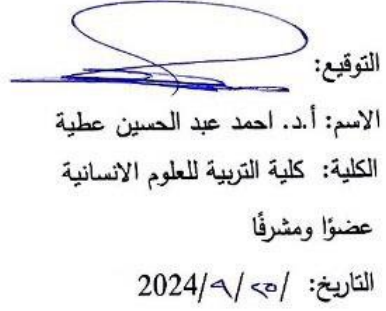 التوقيع:
الاسم: أ.د. احمد عبد الحسين عطية
الكلية: كلية التربية للعلوم الانسانية
عضوًا ومشرفًا
التاريخ: / ٢٥ / ٩ / 2024